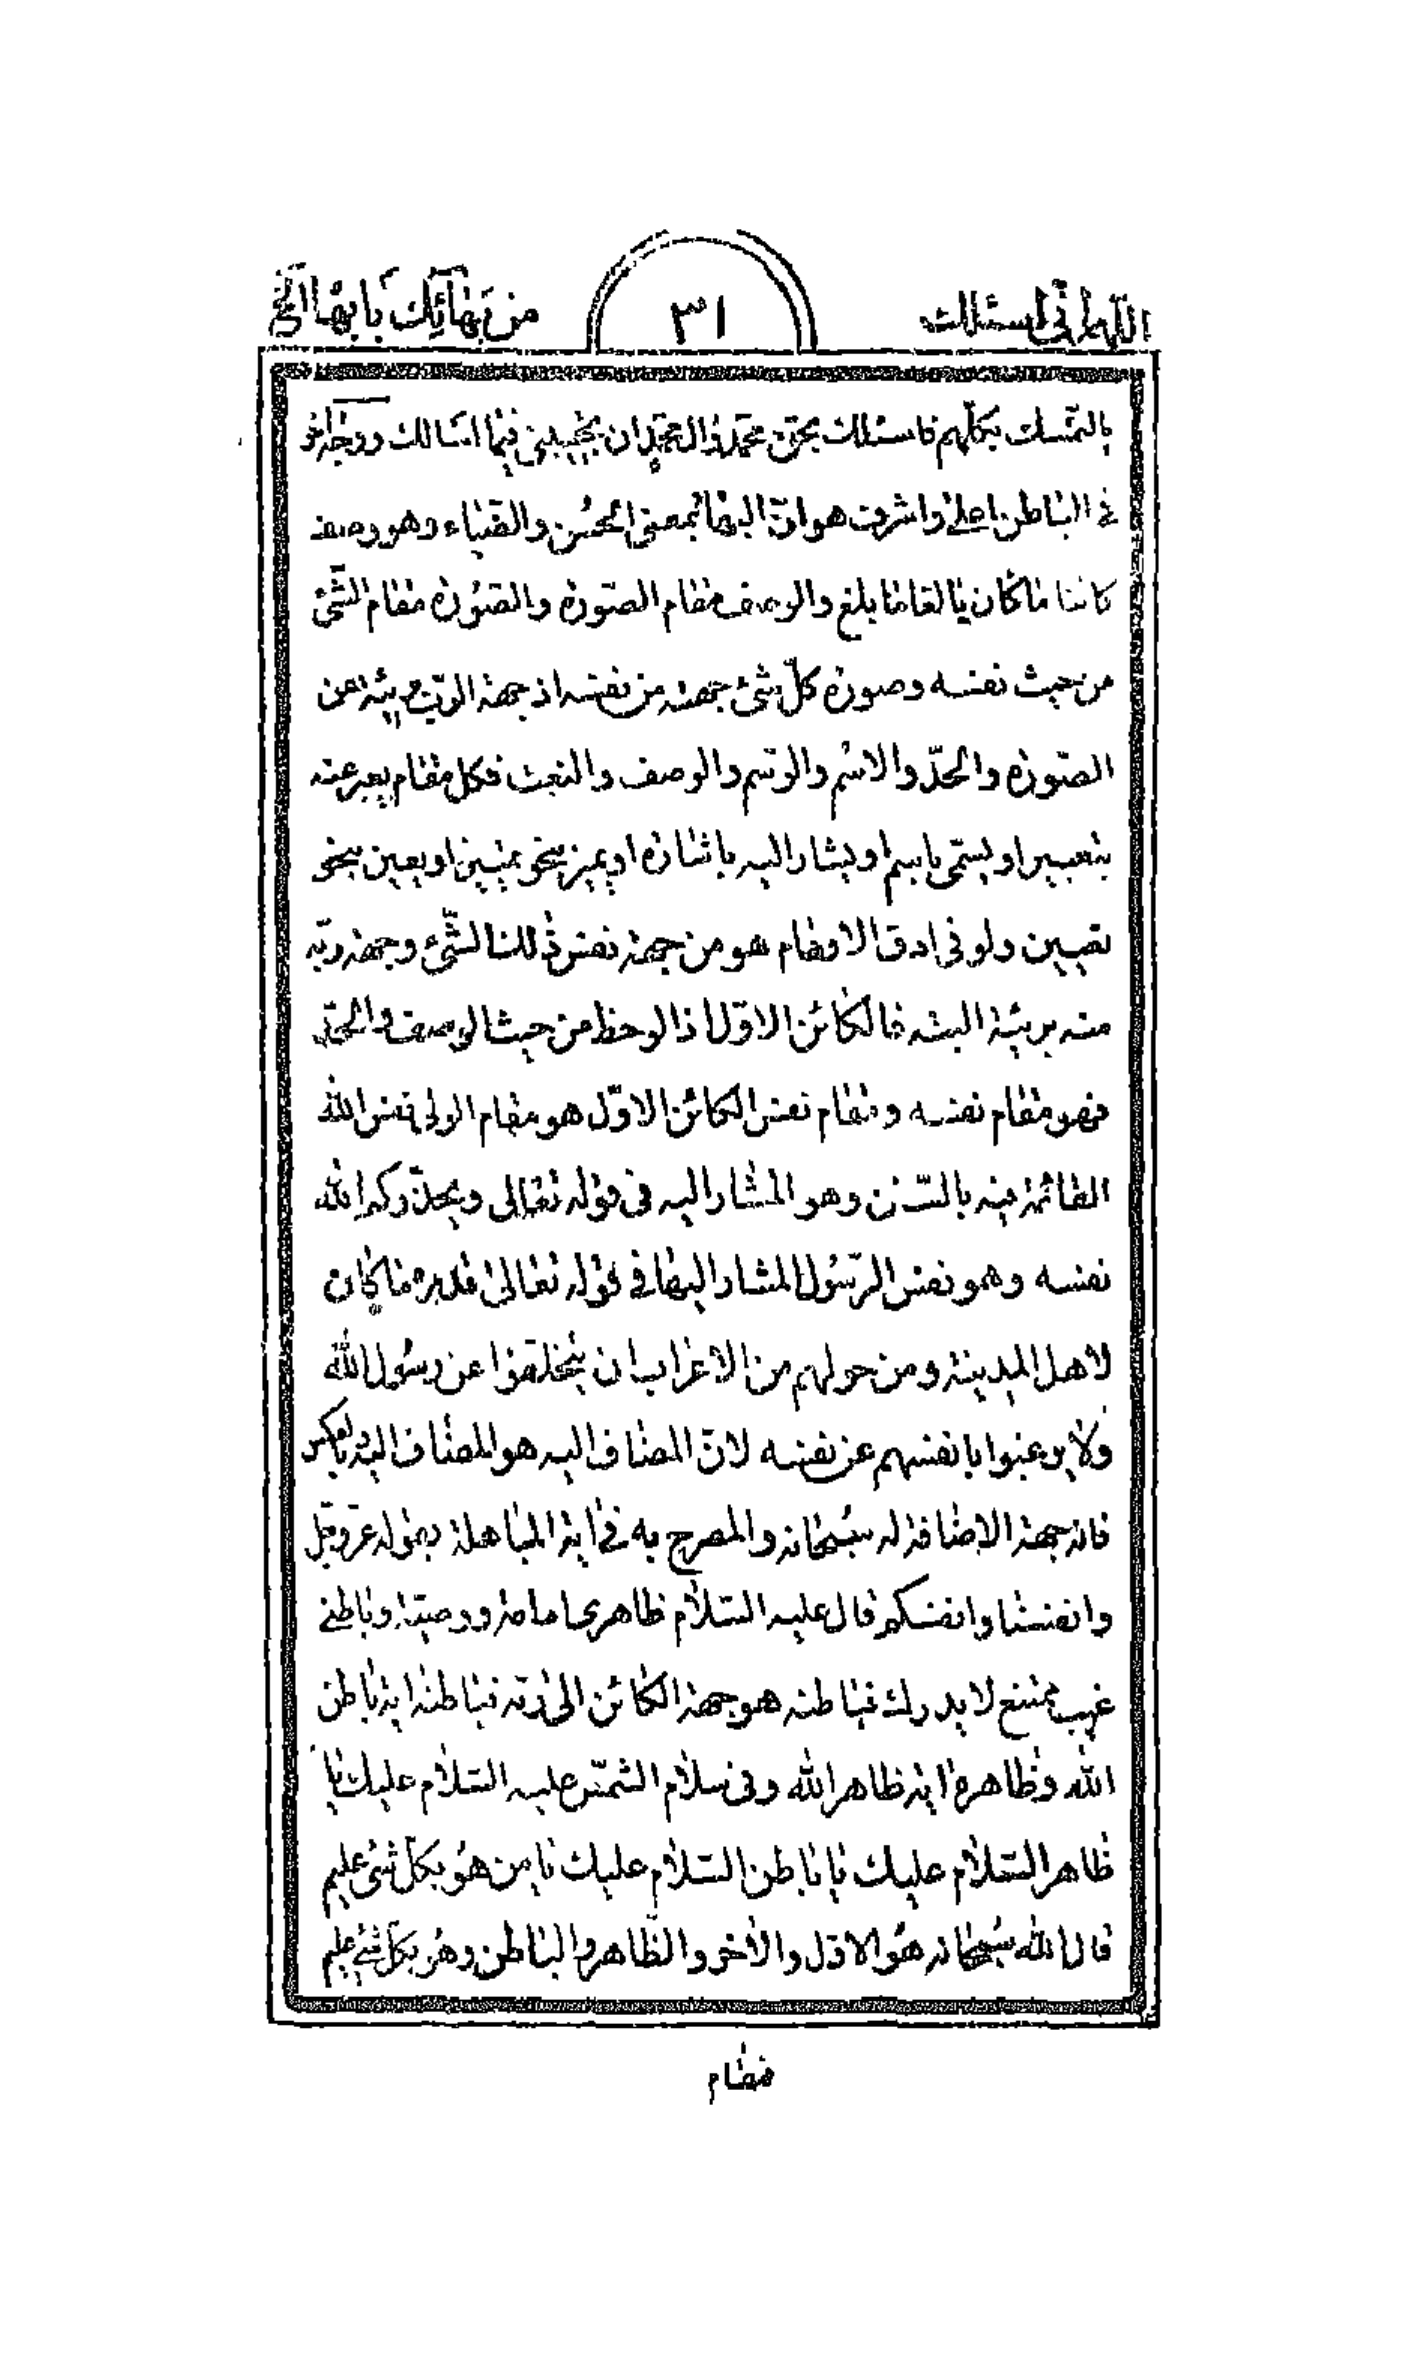 اللهم انی اسئلک ۳۱ من بهائک بابهاه الخ
بالتمسك بكلّهم فاسئلك بحق محمّد وال محمّد ان تجیبنی فیما اسالك ووجه اخر
فی الباطن اعلی واشرف هو انّ البهاء بمعنی الحُسن والضیاء وهو وصف
كائنا ما كان بالغا ما بلغ والوصف مقام الصّورة والصّورة مقام الشّیء
من حیث نفسه وصورة كلّ شیء جهته من نفسه اذ جهة الربّ بریئة عن
الصّورة والحدّ والاسم والرّسم والوصف والنعت فكل مقام یعبر عنه
بتعبیر او یسمّی باسم او یشار الیه باشارة او یمیز بنحو تمییز او یعین بنحو
تعیین ولو فی ادق الاوهام هو من جهة نفس ذلك الشّیء وجهة ربّه
منه بریئة البتة فالكائن الاوّل اذا لوحظ من حیث الوصف والحدّ
فهو مقام نفسه ومقام نفس الكائن الاوّل هو مقام الولی نفس الله
القائمة فیه بالسّنن وهو المشار الیه فی قوله تعالی ویحذّركم الله
نفسه وهو نفس الرّسول المشار الیها فی قوله تعالی ما كان
لاهل المدینة ومن حولهم من الاعراب ان یتخلفوا عن رسول الله
ولا یرغبوا بانفسهم عن نفسه لانّ المضاف الیه هو المضاف الیه بالعكس
فانه جهة الاضافة له سبحانه والمصرح به فی ایة المباهلة بقوله عزّ وجّل
وانفسنا وانفسكم قال علیه السّلام ظاهری امامة ووصیّة وباطنی
غیب ممتنع لا یدرك فباطنه هو جهة الكائن الی ربّه فباطنه ایة باطن
الله وظاهره ایة ظاهر الله وفی سلام الشّمس علیه السّلام علیك یا
ظاهر السّلام علیك یا باطن السّلام علیك یا من هُو بكلّ شیء علیم
قال الله سُبحانه هُو الاوّل والاٰخر والظّاهر والباطن وهُو بكلّ شیء علیم
فمقام